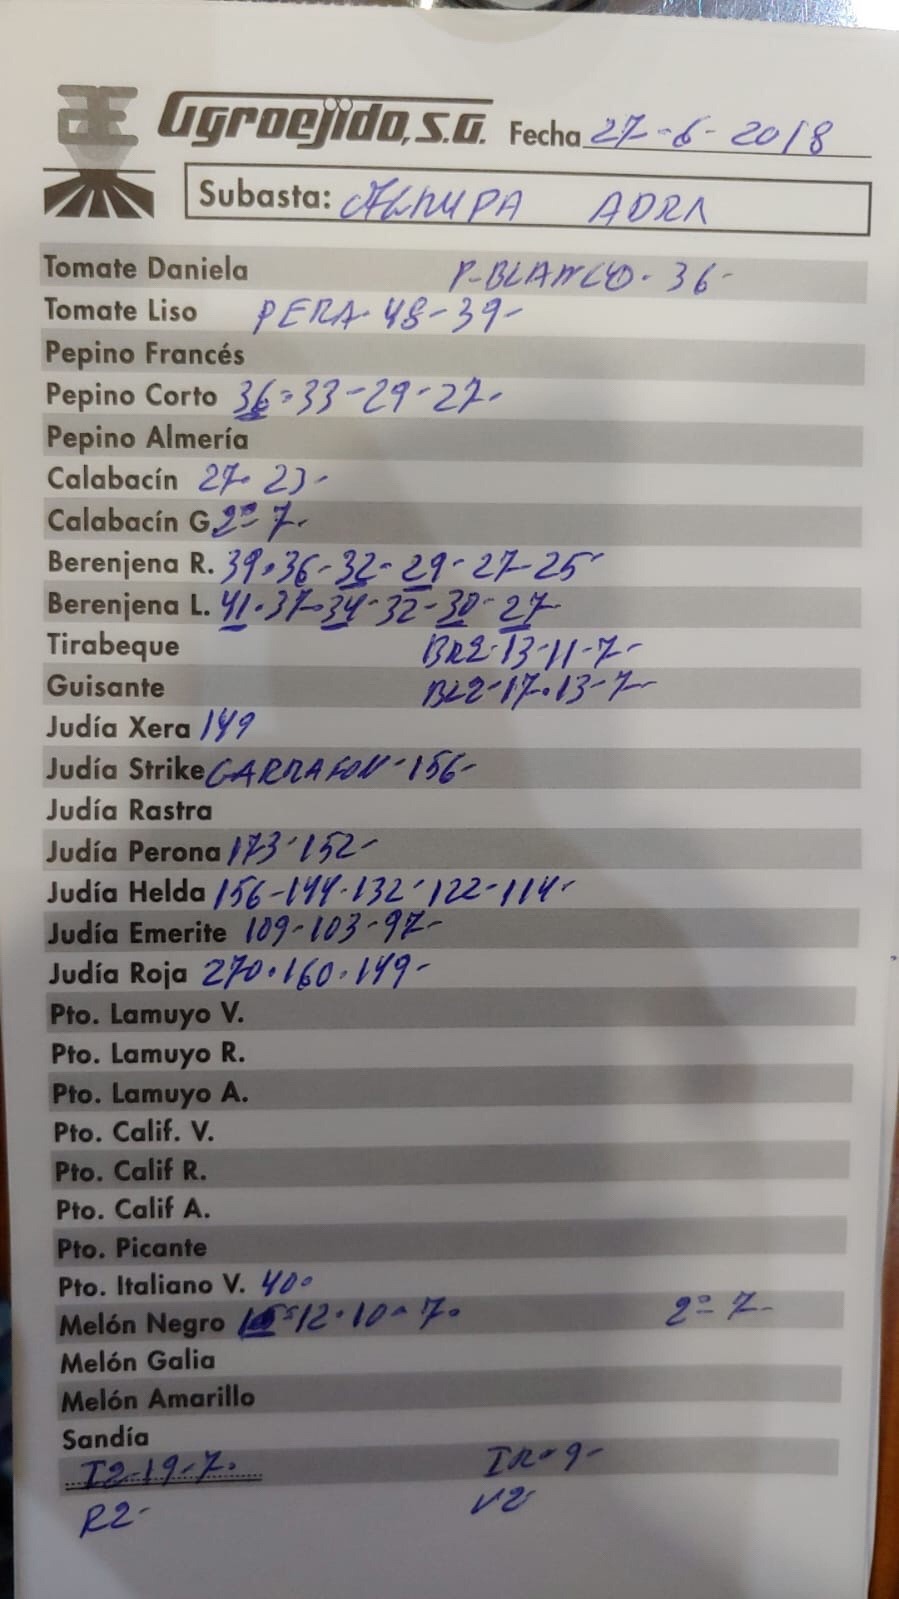 Agroejido, S.A. Fecha 27-6-2018
Subasta: AGRUPA ADRA
Tomate Daniela P-BLANCO-36-
Tomate Liso PERA-48-39-
Pepino Francés
Pepino Corto 36-33-29-27-
Pepino Almería
Calabacín 27-23-
Calabacín G 2ª 7-
Berenjena R. 39-36-32-29-27-25-
Berenjena L. 41-37-34-32-30-27-
Tirabeque BR2-13-11-7-
Guisante BL2-17-13-7-
Judía Xera 149
Judía Strike GARRAFON-156-
Judía Rastra
Judía Perona 173-152-
Judía Helda 156-144-132-122-114-
Judía Emerite 109-103-97-
Judía Roja 270-160-149-
Pto. Lamuyo V.
Pto. Lamuyo R.
Pto. Lamuyo A.
Pto. Calif. V.
Pto. Calif R.
Pto. Calif A.
Pto. Picante
Pto. Italiano V. 40-
Melón Negro 12-10-7- 2ª 7-
Melón Galia
Melón Amarillo
Sandía
I2-19-7- IR-9-
R2- V2